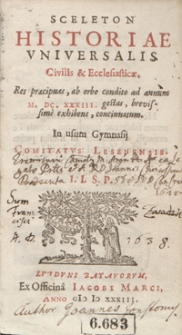 SCELETON
HISTORIAE
VNIVERSALIS
Civilis & Ecclesiasticæ,
Res præcipuas, ab orbe condito ad annum
M. DC. XXXIII. gestas, brevis-
simè exhibens, concinnatum.
In usum Gymnasij
COMITATVS LESZNENSIS.
I. I. S. P.
Sum
Francisci
A. D. 1638.
LVGDVNI BATAVORVM,
Ex Officinâ IACOBI MARCI,
ANNO CIↃ IↃ XXXIII.
Author Joannes Jonstonus
6.683